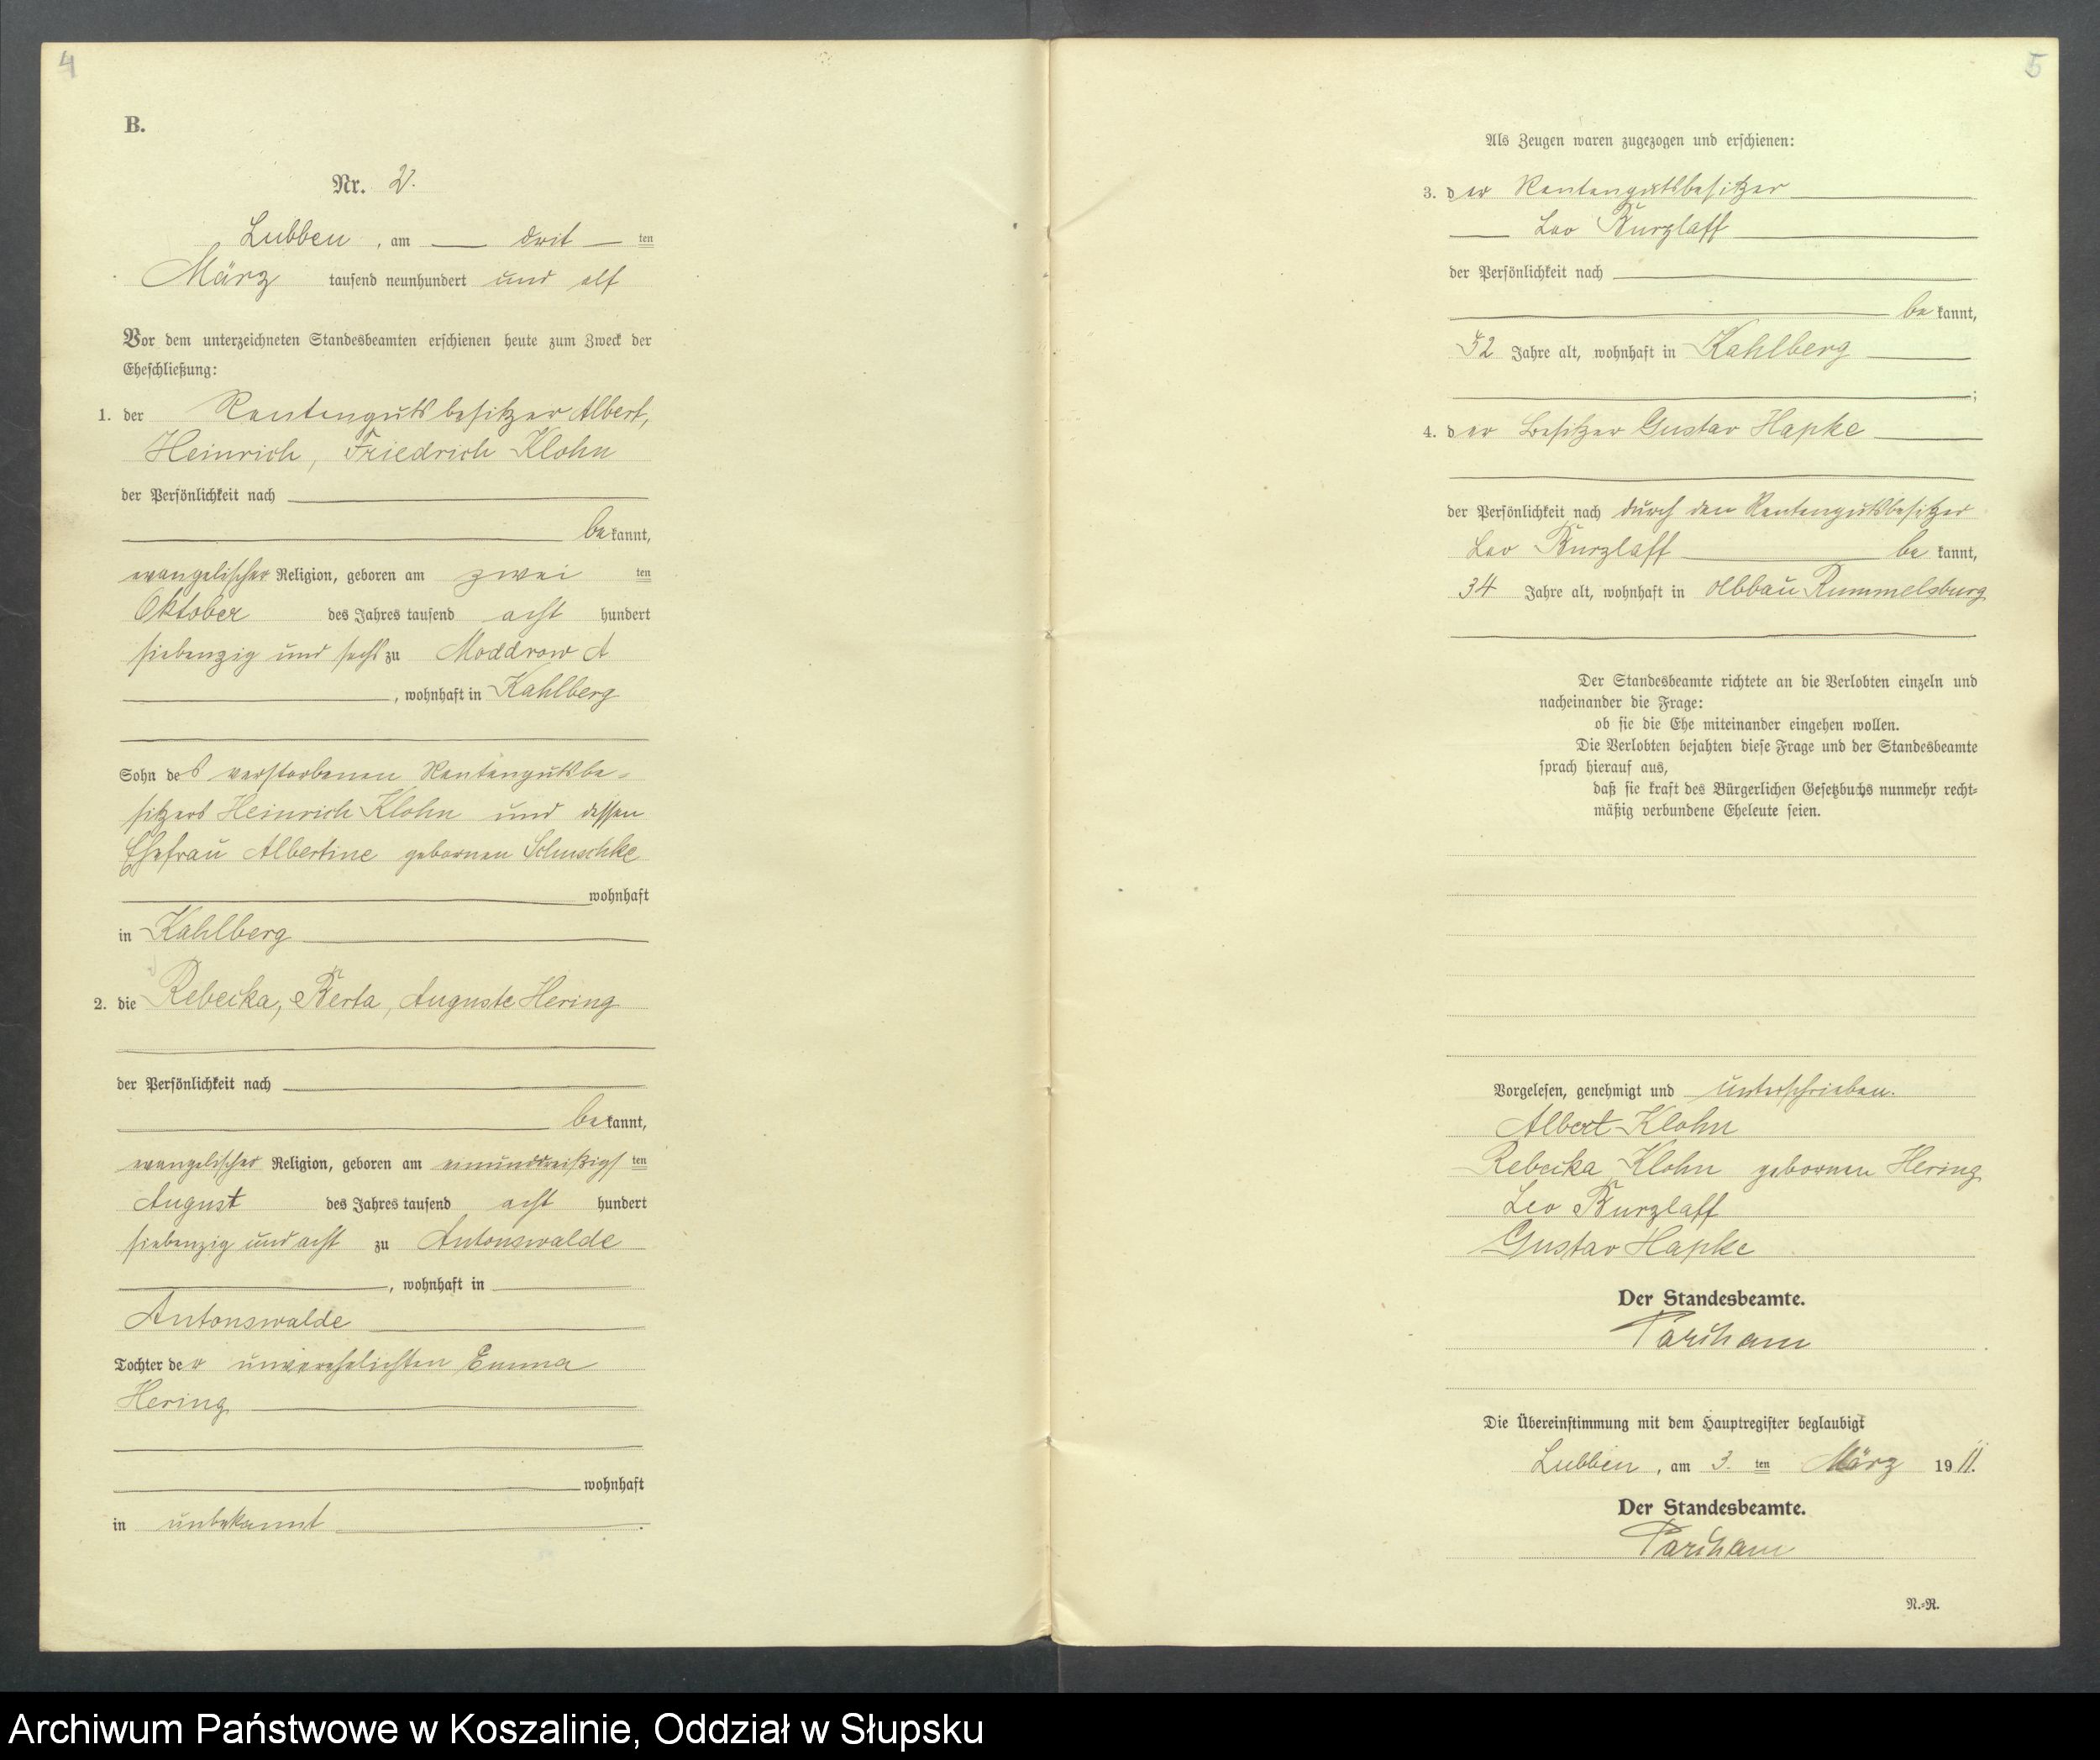 4
B.
Nr. 2.
Lubben, am drit ten
März tausend neunhundert und elf
Vor dem unterzeichneten Standesbeamten erschienen heute zum Zweck der
Eheschließung:
1. der Rentengutsbesitzer Albert,
Heinrich, Friedrich Klohn
der Persönlichkeit nach
bekannt,
evangelischer Religion, geboren am zwei ten
Oktober des Jahres tausend acht hundert
siebenzig und sechs zu Moddrow A
, wohnhaft in Kahlberg
Sohn des verstorbenen Rentengutsbe-
sitzers Heinrich Klohn und dessen
Ehefrau Albertine gebornen
wohnhaft
in Kahlberg
2. die Rebecka, Berta, Auguste Hering
der Persönlichkeit nach
bekannt,
evangelischer Religion, geboren am einunddreißigsten
August des Jahres tausend acht hundert
siebenzig und acht zu Antonswalde
, wohnhaft in
Antonswalde
Tochter der unverehelichten Emma
Hering
wohnhaft
in unbekannt
5
Als Zeugen waren zugezogen und erschienen:
3. der Rentengutsbesitzer
Leo Burzlaff
der Persönlichkeit nach
be kannt,
52 Jahre alt, wohnhaft in Kahlberg
;
4. der Besitzer Gustav Hapke
der Persönlichkeit nach durch den Rentengutsbesitzer
Leo Burzlaff be kannt,
34 Jahre alt, wohnhaft in Abbau Rummelsburg
Der Standesbeamte richtete an die Verlobten einzeln und
nacheinander die Frage:
ob sie die Ehe miteinander eingehen wollen.
Die Verlobten bejahten diese Frage und der Standesbeamte
sprach hierauf aus,
daß sie kraft des Bürgerlichen Gesetzbuchs nunmehr recht-
mäßig verbundene Eheleute seien.
Vorgelesen, genehmigt und unterschrieben.
Albert Klohn
Rebecka Klohn gebornen Hering
Leo Burzlaff
Gustav Hapke
Der Standesbeamte.
Die Übereinstimmung mit dem Hauptregister beglaubigt
Lubben, am 3. ten März 1911.
Der Standesbeamte.
N.-R.
Archiwum Państwowe w Koszalinie, Oddział w Słupsku